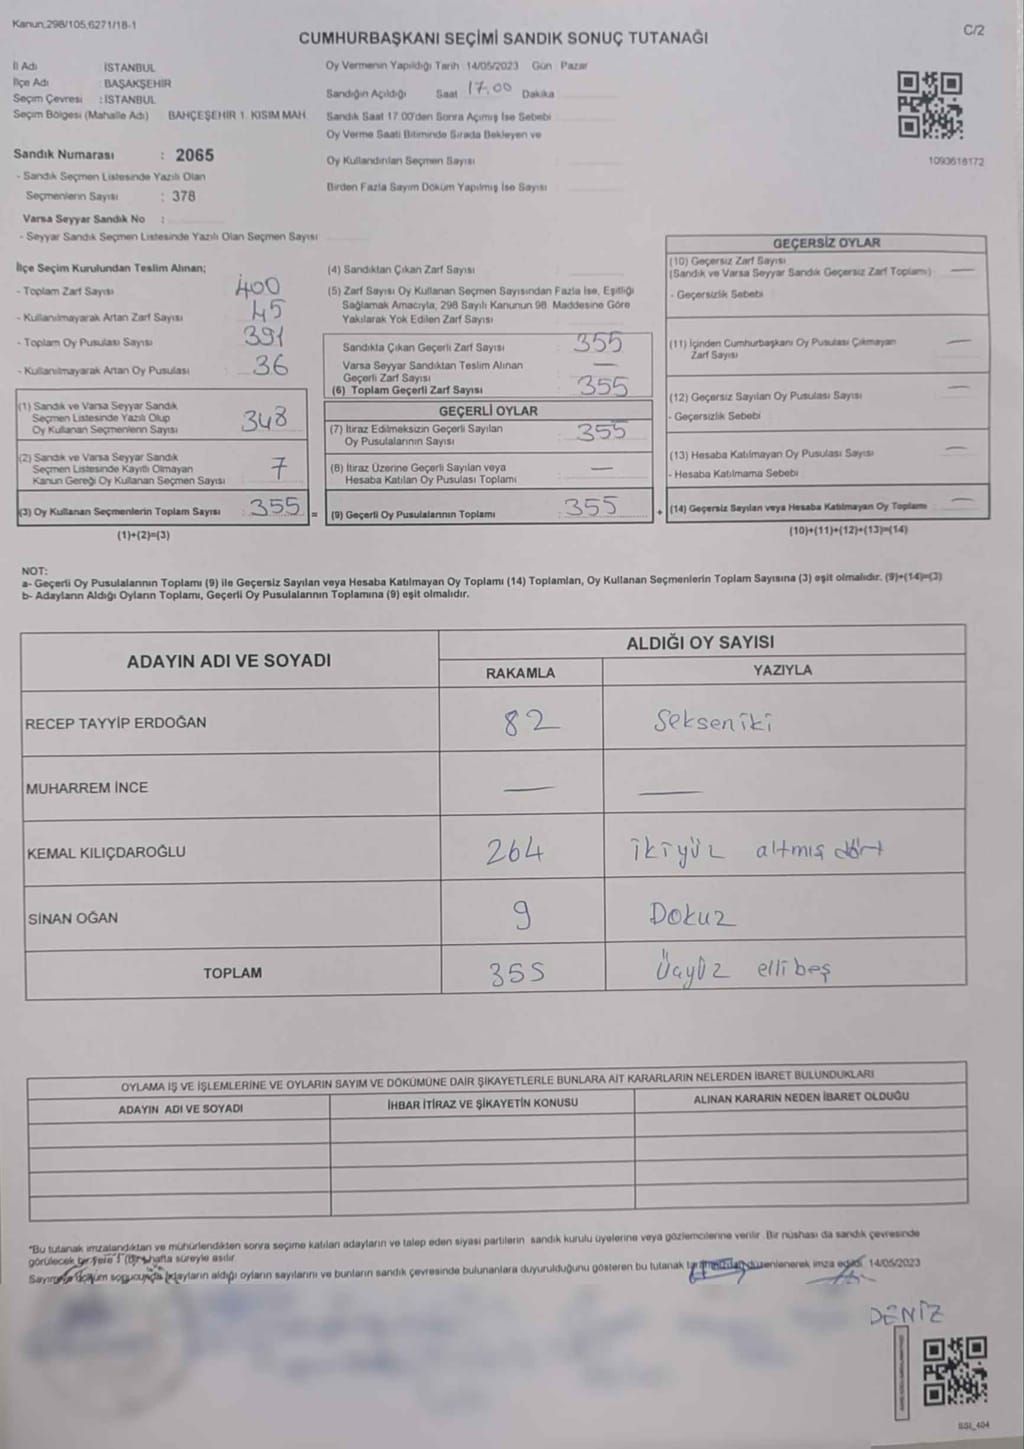 Kanun,298/105,6271/18-1
C/2
CUMHURBAŞKANI SEÇİMİ SANDIK SONUÇ TUTANAĞI
İl Adı İSTANBUL
İlçe Adı : BAŞAKŞEHİR
Seçim Çevresi : İSTANBUL
Seçim Bölgesi (Mahalle Adı) BAHÇEŞEHİR 1. KISIM MAH.
Sandık Numarası : 2065
- Sandık Seçmen Listesinde Yazılı Olan
Seçmenlerin Sayısı : 378
Varsa Seyyar Sandık No :
- Seyyar Sandık Seçmen Listesinde Yazılı Olan Seçmen Sayısı
Oy Vermenin Yapıldığı Tarih : 14/05/2023 Gün : Pazar
Sandığın Açıldığı Saat 17.00 Dakika
Sandık Saat 17.00'den Sonra Açımış İse Sebebi
Oy Verme Saati Bitiminde Sırada Bekleyen ve
Oy Kullandırılan Seçmen Sayısı
Birden Fazla Sayım Döküm Yapılmış İse Sayısı
1093618172
İlçe Seçim Kurulundan Teslim Alınan;
- Toplam Zarf Sayısı 400
- Kullanılmayarak Artan Zarf Sayısı 45
- Toplam Oy Pusulası Sayısı 391
- Kullanılmayarak Artan Oy Pusulası 36
(1) Sandık ve Varsa Seyyar Sandık
Seçmen Listesinde Yazılı Olup
Oy Kullanan Seçmenlerin Sayısı 348
(2) Sandık ve Varsa Seyyar Sandık
Seçmen Listesinde Kayıtlı Olmayan
Kanun Gereği Oy Kullanan Seçmen Sayısı 7
(3) Oy Kullanan Seçmenlerin Toplam Sayısı : 355 =
(1)+(2)=(3)
(4) Sandıktan Çıkan Zarf Sayısı
(5) Zarf Sayısı Oy Kullanan Seçmen Sayısından Fazla İse, Eşitliği
Sağlamak Amacıyla, 298 Sayılı Kanunun 98. Maddesine Göre
Yakılarak Yok Edilen Zarf Sayısı
Sandıkta Çıkan Geçerli Zarf Sayısı : 355
Varsa Seyyar Sandıktan Teslim Alınan
Geçerli Zarf Sayısı —
(6) Toplam Geçerli Zarf Sayısı : 355
GEÇERLİ OYLAR
(7) İtiraz Edilmeksizin Geçerli Sayılan
Oy Pusulalarının Sayısı : 355
(8) İtiraz Üzerine Geçerli Sayılan veya
Hesaba Katılan Oy Pusulası Toplamı —
(9) Geçerli Oy Pusulalarının Toplamı : 355 +
GEÇERSİZ OYLAR
(10) Geçersiz Zarf Sayısı
(Sandık ve Varsa Seyyar Sandık Geçersiz Zarf Toplamı) —
- Geçersizlik Sebebi
(11) İçinden Cumhurbaşkanı Oy Pusulası Çıkmayan
Zarf Sayısı —
(12) Geçersiz Sayılan Oy Pusulası Sayısı —
- Geçersizlik Sebebi
(13) Hesaba Katılmayan Oy Pusulası Sayısı —
- Hesaba Katılmama Sebebi
(14) Geçersiz Sayılan veya Hesaba Katılmayan Oy Toplamı —
(10)+(11)+(12)+(13)=(14)
NOT:
a- Geçerli Oy Pusulalarının Toplamı (9) ile Geçersiz Sayılan veya Hesaba Katılmayan Oy Toplamı (14) Toplamları, Oy Kullanan Seçmenlerin Toplam Sayısına (3) eşit olmalıdır. (9)+(14)=(3)
b- Adayların Aldığı Oyların Toplamı, Geçerli Oy Pusulalarının Toplamına (9) eşit olmalıdır.
ADAYIN ADI VE SOYADI ALDIĞI OY SAYISI
RAKAMLA YAZIYLA
RECEP TAYYİP ERDOĞAN 82 Sekseniki
MUHARREM İNCE — —
KEMAL KILIÇDAROĞLU 264 ikiyüz altmış dört
SİNAN OĞAN 9 Dokuz
TOPLAM 355 Üçyüz ellibeş
OYLAMA İŞ VE İŞLEMLERİNE VE OYLARIN SAYIM VE DÖKÜMÜNE DAİR ŞİKAYETLERLE BUNLARA AİT KARARLARIN NELERDEN İBARET BULUNDUKLARI
ADAYIN ADI VE SOYADI İHBAR İTİRAZ VE ŞİKAYETİN KONUSU ALINAN KARARIN NEDEN İBARET OLDUĞU
*Bu tutanak imzalandıktan ve mühürlendikten sonra seçime katılan adayların ve talep eden siyasi partilerin sandık kurulu üyelerine veya gözlemcilerine verilir. Bir nüshası da sandık çevresinde
görülecek bir yere 1 (Bir) hafta süreyle asılır.
Sayım ve döküm sonucunda adayların aldığı oyların sayılarını ve bunların sandık çevresinde bulunanlara duyurulduğunu gösteren bu tutanak tarafımızdan düzenlenerek imza edildi. 14/05/2023
DENİZ
SSI_404